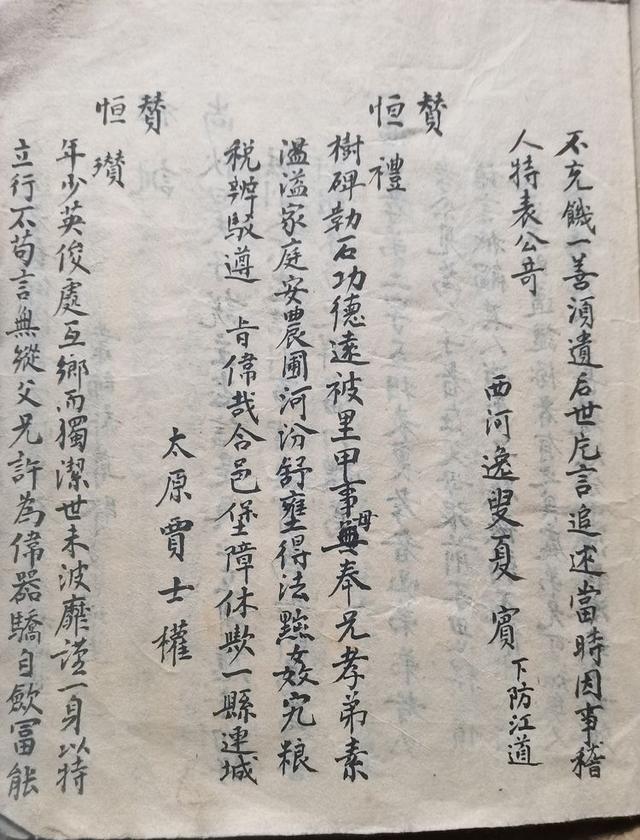 不充饑一善須遺后世片言追述當時因事稽
人特表公奇
西河逸叟夏賓下防江道
恒禮贊
樹碑勒石功德遠被里甲事無母奉兄孝弟素
溫溢家庭安農圃河汾舒壅得法黠奸究粮
税辨駁遵 旨偉哉合邑堡障休歟一縣連城
太原賈士權
恒瓚贊
年少英俊處互鄉而獨潔世未波靡謹一身以特
立行不苟言無縱父兄許為偉器驕自歛富能